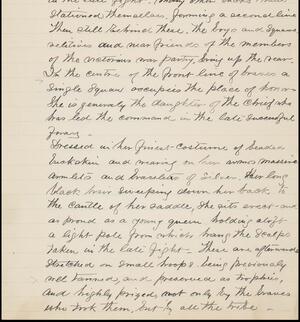 in the late fight. Many other bucks have
Stationed themselves, forming a second line
Then still behind these, the boys and squaws,
relatives and near friends of the members
of the victorious war party, bring up the rear.
In the centre of the front line of braves a
single Squaw occupies the place of honor
She is generally the daughter of the Chief who
has led the command in the late successful
foray
Dressed in her finest costume of beaded
Buckskin and wearing on her arms massive
armlets and bracelets of silver. Her long
black hair sweeping down her back, to
the Cantle of her saddle, She sits erect and
as proud as a young queen holding aloft
a light pole from which hang the scalps
taken in the late fight – These are afterwards
stretched on small hoops being previously
well tanned, and preserved as trophies,
and highly prized not only by the braves
who took them, but by all the tribe –